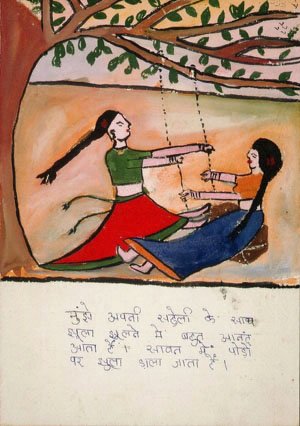 मुझे अपनी सहेली के साथ
झूला झूलने मे बहुत आनंद
आता है। सावन में पेडो
पर झूला डाला जाता है।